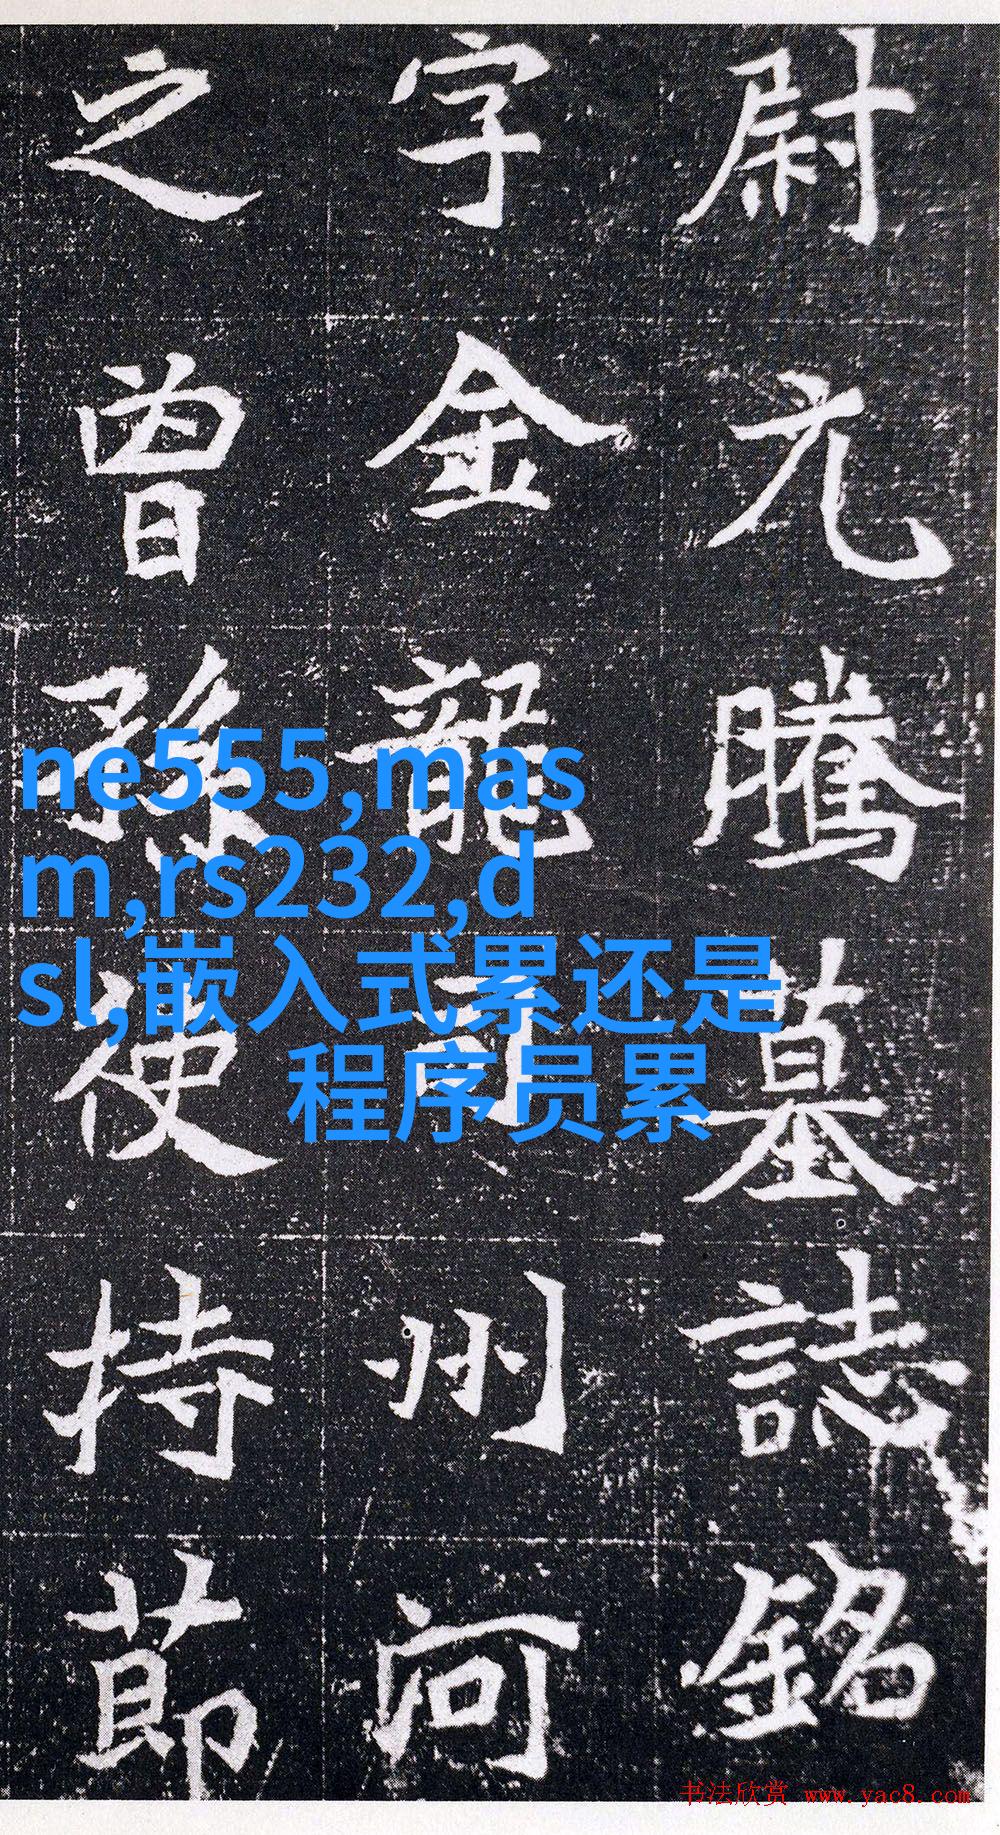 尉元騰墓誌銘
字金龍司州河
之曾孫使持莭
ne555,mas
m,rs232,d
sl,嵌入式累还是
程序员累
书法欣赏 www.yac8.com